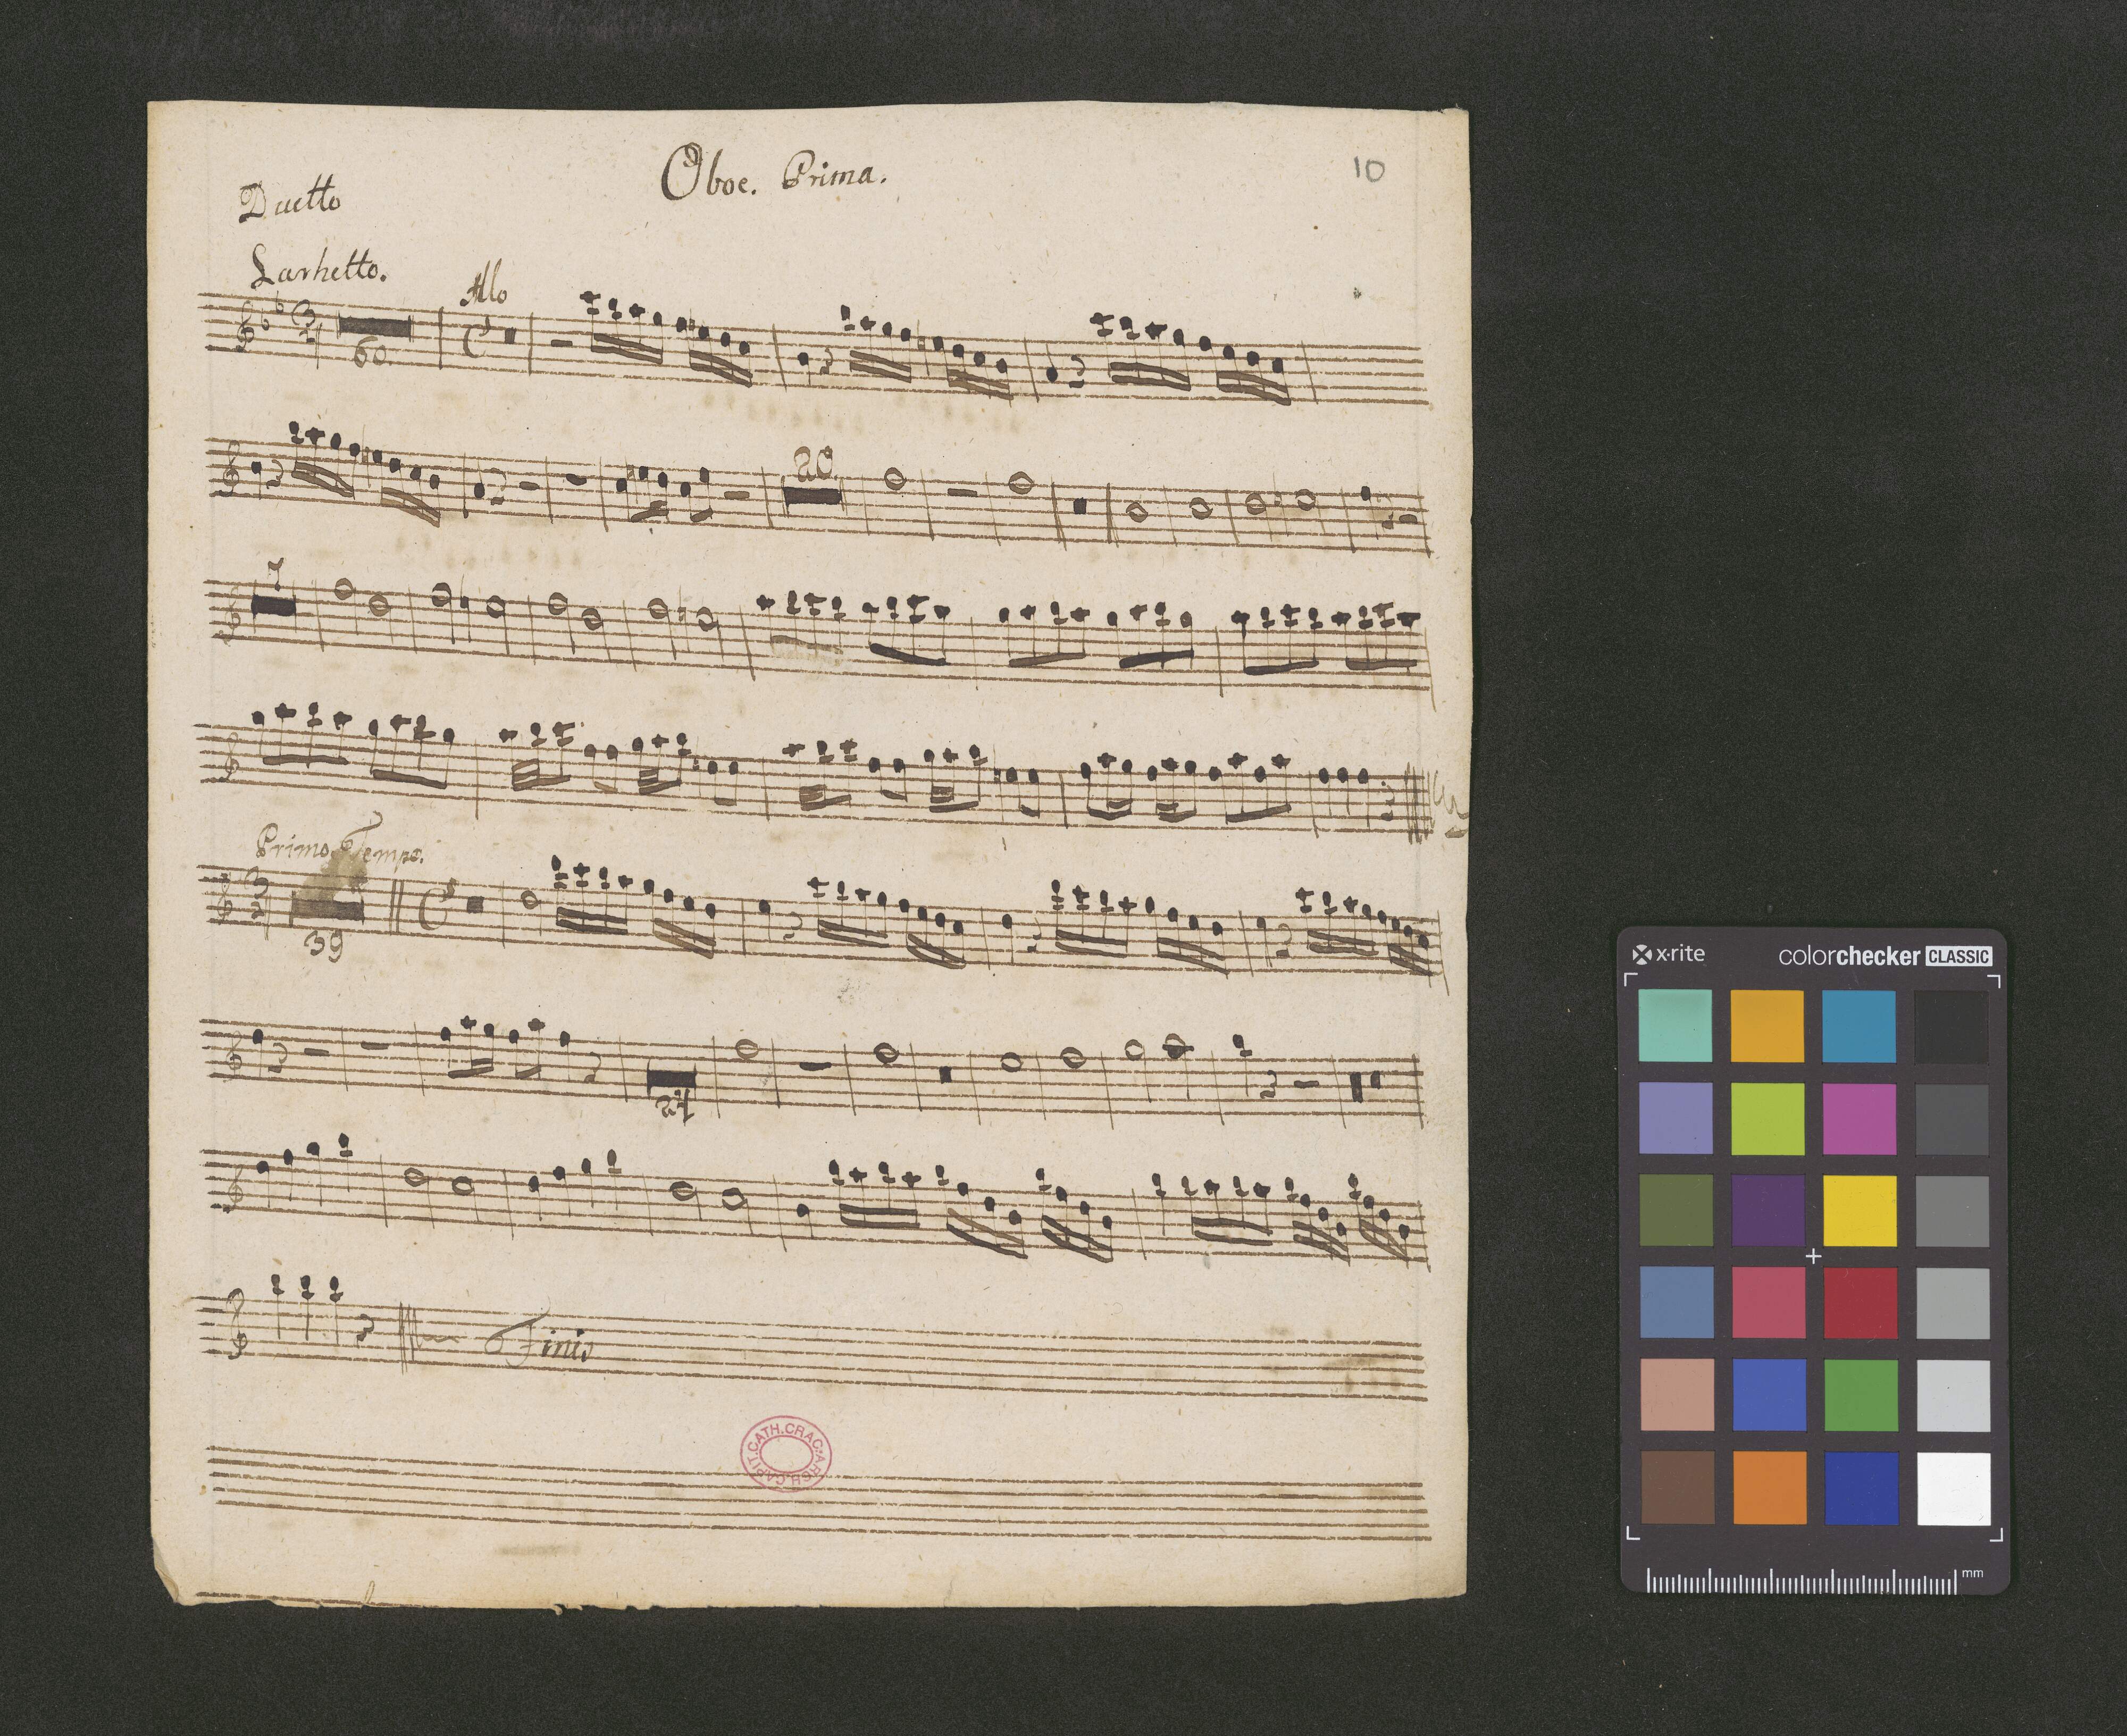 Oboe. Prima.
10
Duetto
Larhetto.
Allo
60
20
7
Primo Tempo.
39
24
Finis
ARCH.CAPIT.CATH.CRAC.
x-rite
colorchecker CLASSIC
mm